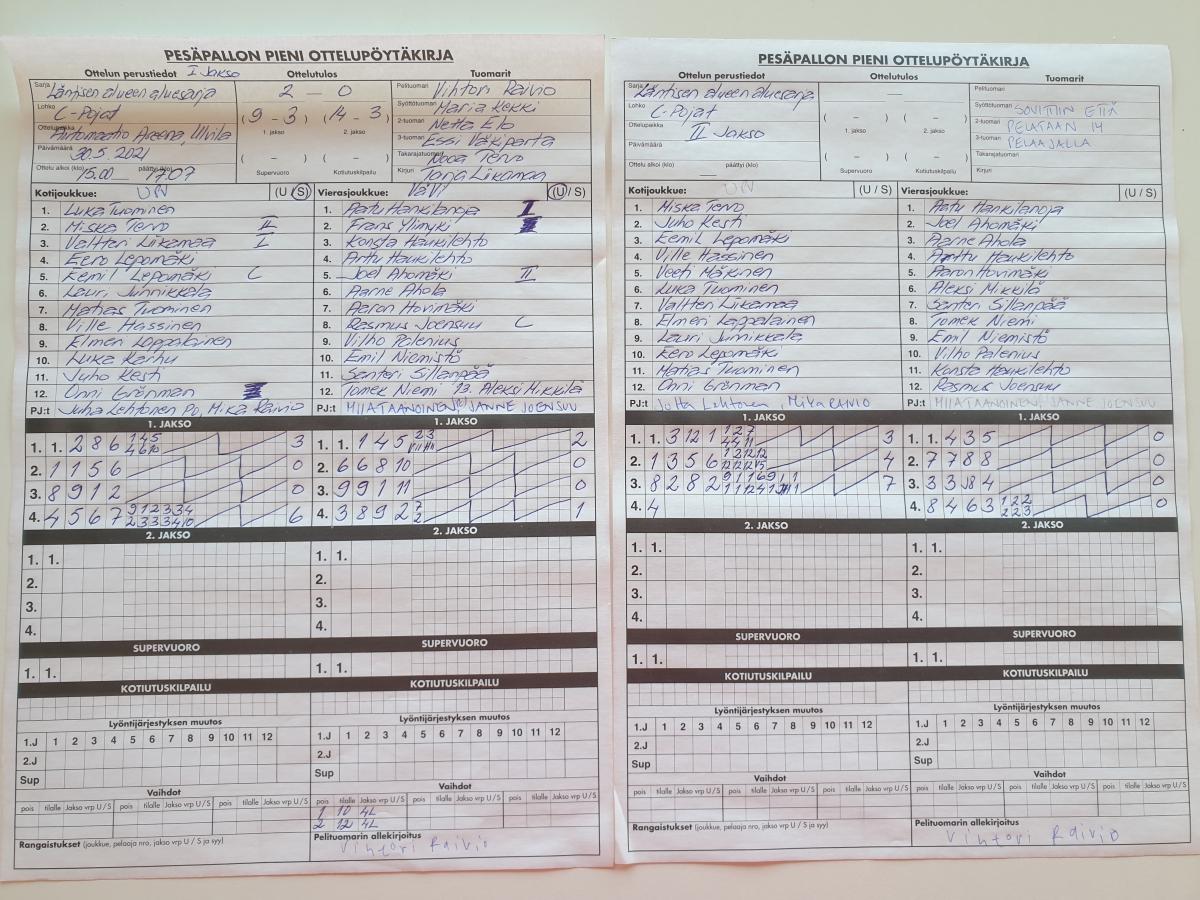 PESÄPALLON PIENI OTTELUPÖYTÄKIRJA
Ottelun perustiedot I Jakso Ottelutulos Tuomarit
Sarja Läntisen alueen aluesarja 2 – 0 Pelituomari Vihtori Raivio
Lohko C-Pojat (9 – 3) (14 – 3) Syöttötuomari Maria Kekki
1. jakso 2. jakso 2-tuomari Netta Elo
Ottelupaikka Automaatio Areena, Ulvila 3-tuomari Essi Väkiparta
Päivämäärä 30.5.2021 ( – ) ( – ) Takarajatuomari Nooa Tervo
Ottelu alkoi (klo) 15.00 päättyi (klo) 17.07 Supervuoro Kotiutuskilpailu Kirjuri
Kotijoukkue: UPV (U / S) Vierasjoukkue: ValVi (U / S)
1. Luka Tuominen 1. Aatu Hankilanoja I
2. Miska Tervo II 2. Frans Ylimyki
3. Valtteri Liikamaa I 3. Konsta Haukilehto
4. Eero Lepomäki 4. Arttu Haukilehto
5. Eemil Lepomäki C 5. Joel Ahomäki II
6. Lauri Junnikkala 6. Aarne Ahola
7. Matias Tuominen 7. Aaron Hovimäki
8. Ville Hassinen 8. Rasmus Joensuu C
9. Elmeri Lappalainen 9. Vilho Palenius
10. Luka Karhu 10. Emil Niemistö
11. Juho Kesti 11. Santeri Sillanpää
12. Onni Grönman 12. Tomek Niemi 13. Aleksi Mikkilä
PJ:t Juha Lehtonen PO, Mika Raivio PJ:t MIIA TAANOINEN, JANNE JOENSUU
1. JAKSO 1. JAKSO
1. 1. 2 8 6 3 1. 1. 4 5 2
2. 1 1 5 6 0 2. 6 6 8 10 0
3. 8 9 1 2 0 3. 9 9 1 11 0
4. 4 5 6 7 6 4. 3 8 9 2 1
2. JAKSO 2. JAKSO
1. 1. 1. 1.
2. 2.
3. 3.
4. 4.
SUPERVUORO SUPERVUORO
1. 1. 1. 1.
KOTIUTUSKILPAILU KOTIUTUSKILPAILU
Lyöntijärjestyksen muutos Lyöntijärjestyksen muutos
1.J 1 2 3 4 5 6 7 8 9 10 11 12 1.J 1 2 3 4 5 6 7 8 9 10 11 12
2.J 2.J
Sup Sup
Vaihdot Vaihdot
pois tilalle Jakso vrp U / S pois tilalle Jakso vrp U / S pois tilalle Jakso vrp U / S pois tilalle Jakso vrp U / S pois tilalle Jakso vrp U / S pois tilalle Jakso vrp U / S
1 10 4L
2 12 4L
Rangaistukset (joukkue, pelaaja nro, jakso vrp U / S ja syy) Pelituomarin allekirjoitus
Vihtori Raivio
PESÄPALLON PIENI OTTELUPÖYTÄKIRJA
Ottelun perustiedot Ottelutulos Tuomarit
Sarja Läntisen alueen aluesarja – Pelituomari Vihtori Raivio
Lohko C-Pojat ( – ) ( – ) Syöttötuomari SOVITTIIN ETTÄ
Ottelupaikka II Jakso 1. jakso 2. jakso 2-tuomari PELATAAN 14
3-tuomari PELAAJALLA
Päivämäärä ( – ) ( – ) Takarajatuomari
Ottelu alkoi (klo) päättyi (klo) Supervuoro Kotiutuskilpailu Kirjuri
Kotijoukkue: UPV (U / S) Vierasjoukkue: (U / S)
1. Miska Tervo 1. Aatu Hankilanoja
2. Juho Kesti 2. Joel Ahomäki
3. Eemil Lepomäki 3. Aarne Ahola
4. Ville Hassinen 4. Arttu Haukilehto
5. Veeti Mäkinen 5. Aaron Hovimäki
6. Luka Tuominen 6. Aleksi Mikkilä
7. Valtteri Liikamaa 7. Santeri Sillanpää
8. Elmeri Lappalainen 8. Tomek Niemi
9. Lauri Junnikkala 9. Emil Niemistö
10. Eero Lepomäki 10. Vilho Palenius
11. Matias Tuominen 11. Konsta Haukilehto
12. Onni Grönman 12. Rasmus Joensuu
PJ:t Jutta Lehtonen, Mika RAIVIO PJ:t MIIA TAANOINEN, JANNE JOENSUU
1. JAKSO 1. JAKSO
1. 1. 3 12 1 3 1. 1. 4 3 5 0
2. 1 3 5 6 4 2. 7 7 8 8 0
3. 8 2 8 2 7 3. 3 3 4 0
4. 4 4. 8 4 6 3 0
2. JAKSO 2. JAKSO
1. 1. 1. 1.
2. 2.
3. 3.
4. 4.
SUPERVUORO SUPERVUORO
1. 1. 1. 1.
KOTIUTUSKILPAILU KOTIUTUSKILPAILU
Lyöntijärjestyksen muutos Lyöntijärjestyksen muutos
1.J 1 2 3 4 5 6 7 8 9 10 11 12 1.J 1 2 3 4 5 6 7 8 9 10 11 12
2.J 2.J
Sup Sup
Vaihdot Vaihdot
pois tilalle Jakso vrp U / S pois tilalle Jakso vrp U / S pois tilalle Jakso vrp U / S pois tilalle Jakso vrp U / S pois tilalle Jakso vrp U / S pois tilalle Jakso vrp U / S
Rangaistukset (joukkue, pelaaja nro, jakso vrp U / S ja syy) Pelituomarin allekirjoitus
Vihtori Raivio